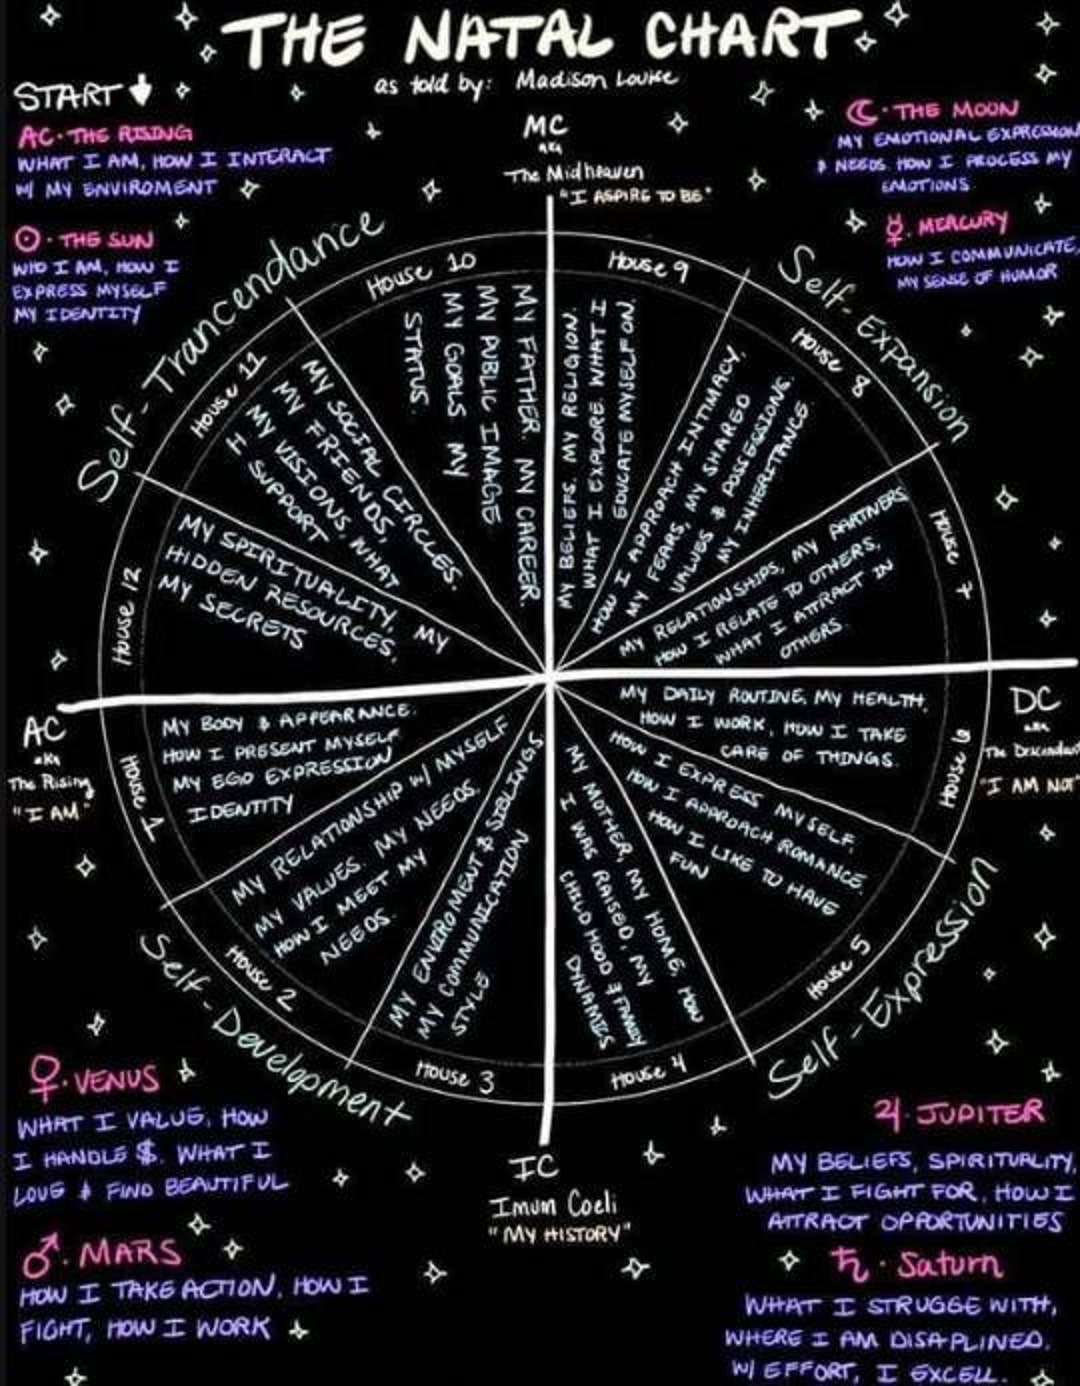 THE NATAL CHART
as told by: Madison Louise
START
AC · THE RISING
WHAT I AM, HOW I INTERACT
W/ MY ENVIROMENT
☉ · THE SUN
WHO I AM, HOW I
EXPRESS MYSELF
MY IDENTITY
MC
aka
The Midheaven
"I ASPIRE TO BE"
☾ · THE MOON
MY EMOTIONAL EXPRESSION
& NEEDS. HOW I PROCESS MY
EMOTIONS
☿. MERCURY
HOW I COMMUNICATE,
MY SENSE OF HUMOR
Self-Trancendance
Self-Expansion
House 10
MY FATHER. MY CAREER.
MY PUBLIC IMAGE
MY GOALS MY
STATUS.
House 9
MY BELIEFS. MY RELIGION.
WHAT I EXPLORE. WHAT I
EDUCATE MYSELF ON.
House 8
HOW I APPROACH INTIMACY,
MY FEARS, MY SHARED
VALUES & POSSESSIONS.
MY INHERITANCE
House 7
MY RELATIONSHIPS, MY PARTNERS
HOW I RELATE TO OTHERS,
WHAT I ATTRACT IN
OTHERS.
House 11
MY SOCIAL CIRCLES.
MY FRIENDS,
MY VISIONS, WHAT
I SUPPORT
House 12
MY SPIRITUALITY, MY
HIDDEN RESOURCES,
MY SECRETS
AC
aka
The Rising
"I AM"
DC
aka
The Descendant
"I AM NOT"
House 1
MY BODY & APPEARANCE.
HOW I PRESENT MYSELF
MY EGO EXPRESSION
IDENTITY
House 2
MY RELATIONSHIP W/ MYSELF
MY VALUES. MY NEEDS.
HOW I MEET MY
NEEDS.
House 3
MY ENVIROMENT & SIBLINGS
MY COMMUNICATION
STYLE
House 4
MY MOTHER, MY HOME, HOW
I WAS RAISED, MY
CHILD HOOD & FAMILY
DYNAMICS
House 5
HOW I EXPRESS MYSELF,
HOW I APPROACH ROMANCE,
HOW I LIKE TO HAVE
FUN
House 6
MY DAILY ROUTINE, MY HEALTH,
HOW I WORK, HOW I TAKE
CARE OF THINGS.
Self-Development
Self-Expression
IC
Imum Coeli
"MY HISTORY"
♀. VENUS
WHAT I VALUE, HOW
I HANDLE $. WHAT I
LOVE & FIND BEAUTIFUL
♂. MARS
HOW I TAKE ACTION, HOW I
FIGHT, HOW I WORK
♃ · JUPITER
MY BELIEFS, SPIRITUALITY,
WHAT I FIGHT FOR, HOW I
ATTRACT OPPORTUNITIES
♄ · Saturn
WHAT I STRUGGE WITH,
WHERE I AM DISAPLINED.
W/ EFFORT, I EXCELL.